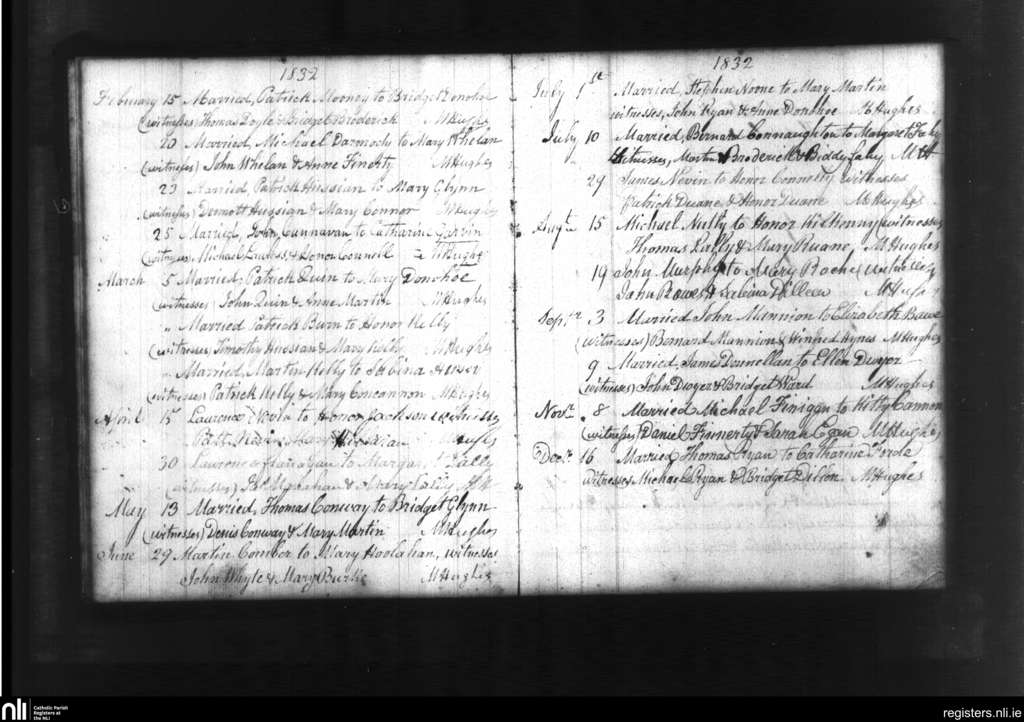 1832
February 15 Married, Patrick Mooney to Bridget Donohoe
(witnesses) Thomas Doyle & Bridget Broderick MHughes
20 Married, Michael Darmody to Mary Whelan
(witnesses) John Whelan & Anne Finerty MHughes
23 Married, Patrick Hussian to Mary Glynn
(witnesses) Dermott & Mary Connor MHughes
25 Married, John Cunnavan to Catharine Garvin
(witnesses) Michael Lawless & Honor Connell MHughes
March 5 Married, Patrick Quin to Mary Donohoe
(witnesses) John Quin & Anne Martin MHughes
" Married Patrick Burn to Honor Kelly
(witnesses) Timothy Hussian & Mary Kelly MHughes
" Married, Martin Kelly to Sabina
(witnesses) Patrick Kelly & Mary Concannon MHughes
April 15 Laurence to Honor Jackson witnesses
Patt Mary Hussian MHughes
30 Laurence Flanagan to Margaret Lally
(witnesses) Monahan & Mary Lally MH
May 13 Married, Thomas Conway to Bridget Glynn
(witnesses) Denis Conway & Mary Martin MHughes
June 29 Martin Comber to Mary Hoolahan, witnesses
John Whyte & Mary Burke MHughes
1832
July 1st Married, Stephen Noone to Mary Martin
witnesses, John Ryan & Anne Donohoe MHughes
July 10 Married, Bernard Connaughton to Margaret Fahy
Witnesses, Martin Broderick & Biddy Fahy MH
29 James Nevin to Honor Connelly witnesses
Patrick Duane & Honor Duane MHughes
Augt 15 Michael Nully to Honor witnesses
Thomas Lally & Mary Ruane, MHughes
19 John Murphy to Mary Roche, witnesses
John & Sabina Dilleen MHughes
Sepr 3 Married John Mannion to Elizabeth
(witnesses) Bernard Mannion & Winifred Hynes MHughes
9 Married, James Donnellan to Ellen Dwyer
(witnesses) John Dwyer & Bridget Ward MHughes
Novr 8 Married Michael Finigan to Kitty Cannon
(witnesses) Daniel Finnerty & Sarah Egan MHughes
Decr 16 Married Thomas Ryan to Catharine Forde
witnesses Michael Ryan & Bridget Dillon MHughes
nli
Catholic Parish
Registers at
the NLI
registers.nli.ie